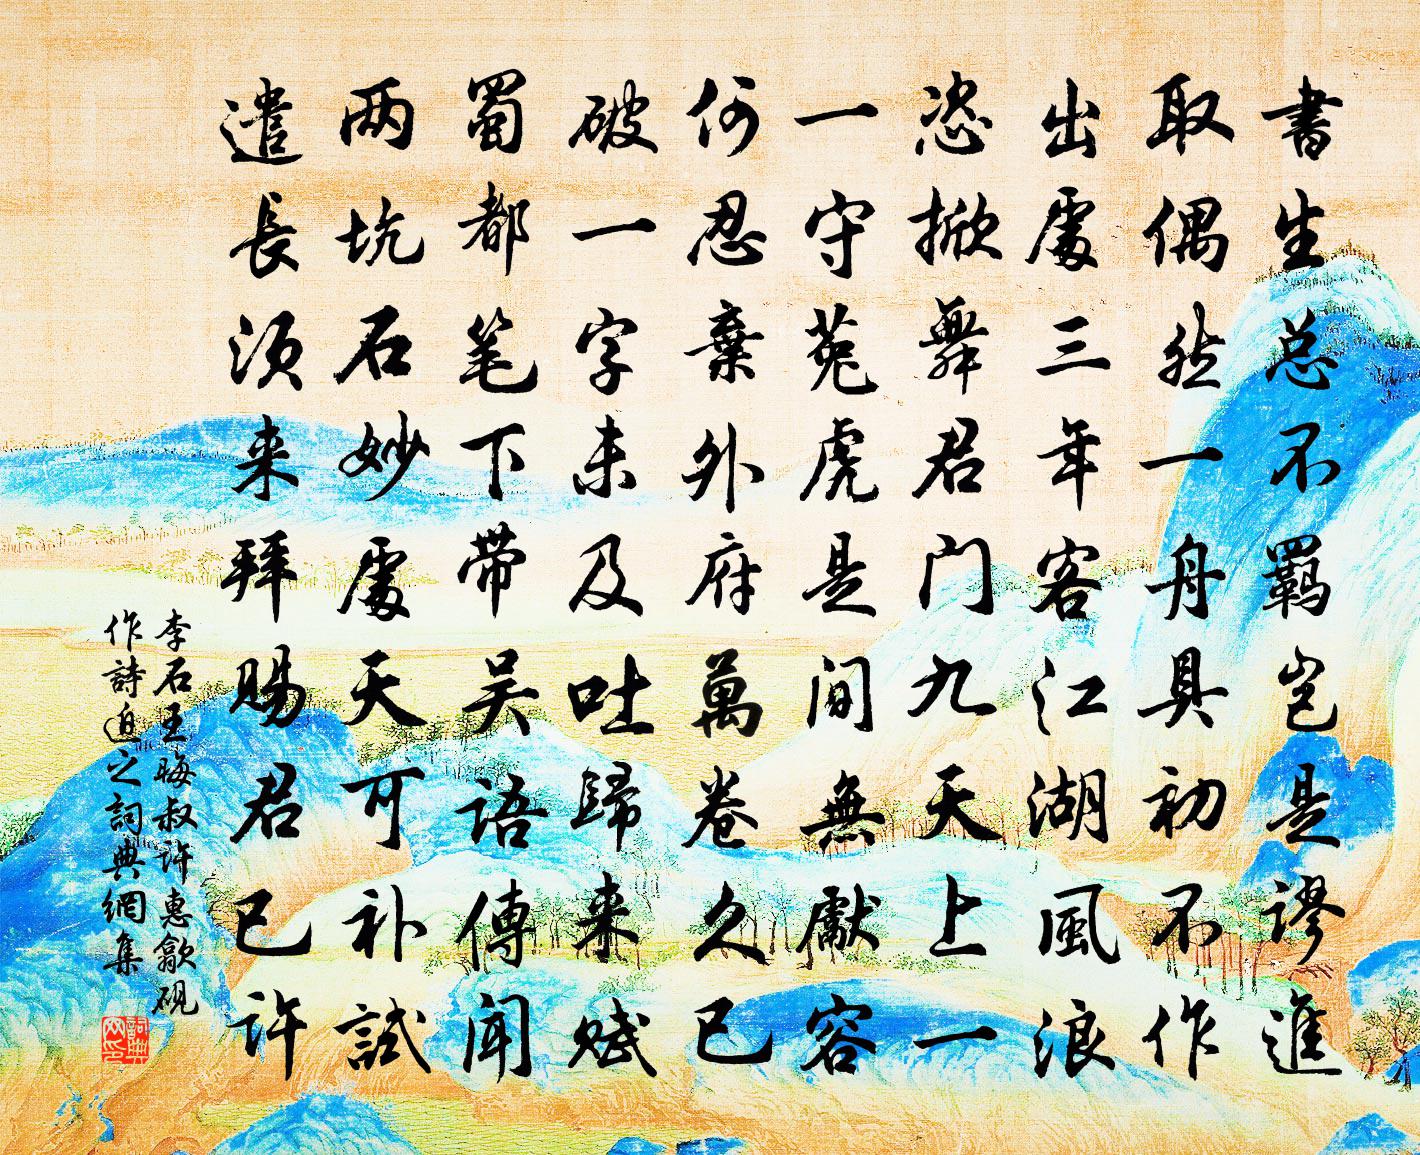 書生总不羁岂是謬進
取偶然一舟具初不作
出處三年客江湖風浪
恣掀舞君门九天上一
一守菟虎是间無獻容
何忍棄外府萬卷久已
破一字未及吐歸来賦
蜀都笔下带吴语傳闻
两坑石妙處天可补試
遣長须来拜賜君已许
李石王晦叔许惠歙砚
作詩迫之詞典網集